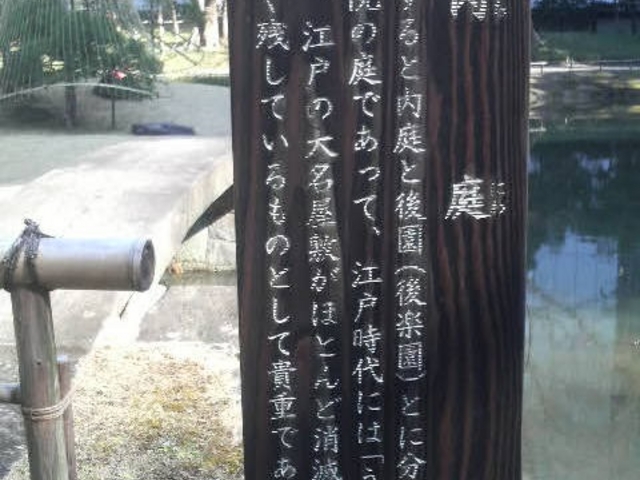 内庭
すると内庭と後園(後楽園)とに分
院の庭であって、江戸時代には「う
江戸の大名屋敷がほとんど消滅
く残しているものとして貴重であ